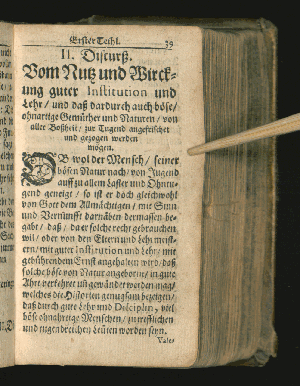 Erster Theil. 39
II. Discurß.
Vom Nutz und Wirck-
ung guter Institution und
Lehr / und daß dardurch auch böse /
ohnartige Gemüther und Naturen / von
aller Boßheit / zur Tugend angefrischet
und gezogen werden
mögen.
OB wol der Mensch / seiner
bösen Natur nach / von Jugend
auff zu allem Laster und Ohntu-
gend geneigt / so ist er doch gleichwohl
von Gott dem Allmächtigen / mit Sinn
und Vernunfft darnäben dermassen be-
gabt / daß / da er solche recht gebrauchen
wil / oder von den Eltern und Lehrmeist-
ern / mit guter Institution und Lehr / mit
gebührendem Ernst angehalten wird / daß
solche böse von Natur angeborne / in gute
Ahrt verkehret und gewänder werden mag /
welches die Historien genugsam bezeigen /
daß durch gute Lehr und Disciplin, viel
böse ohnahrtige Menschen / zu trefflichen
und tugendreichen Leuten worden seyn.
Vale-